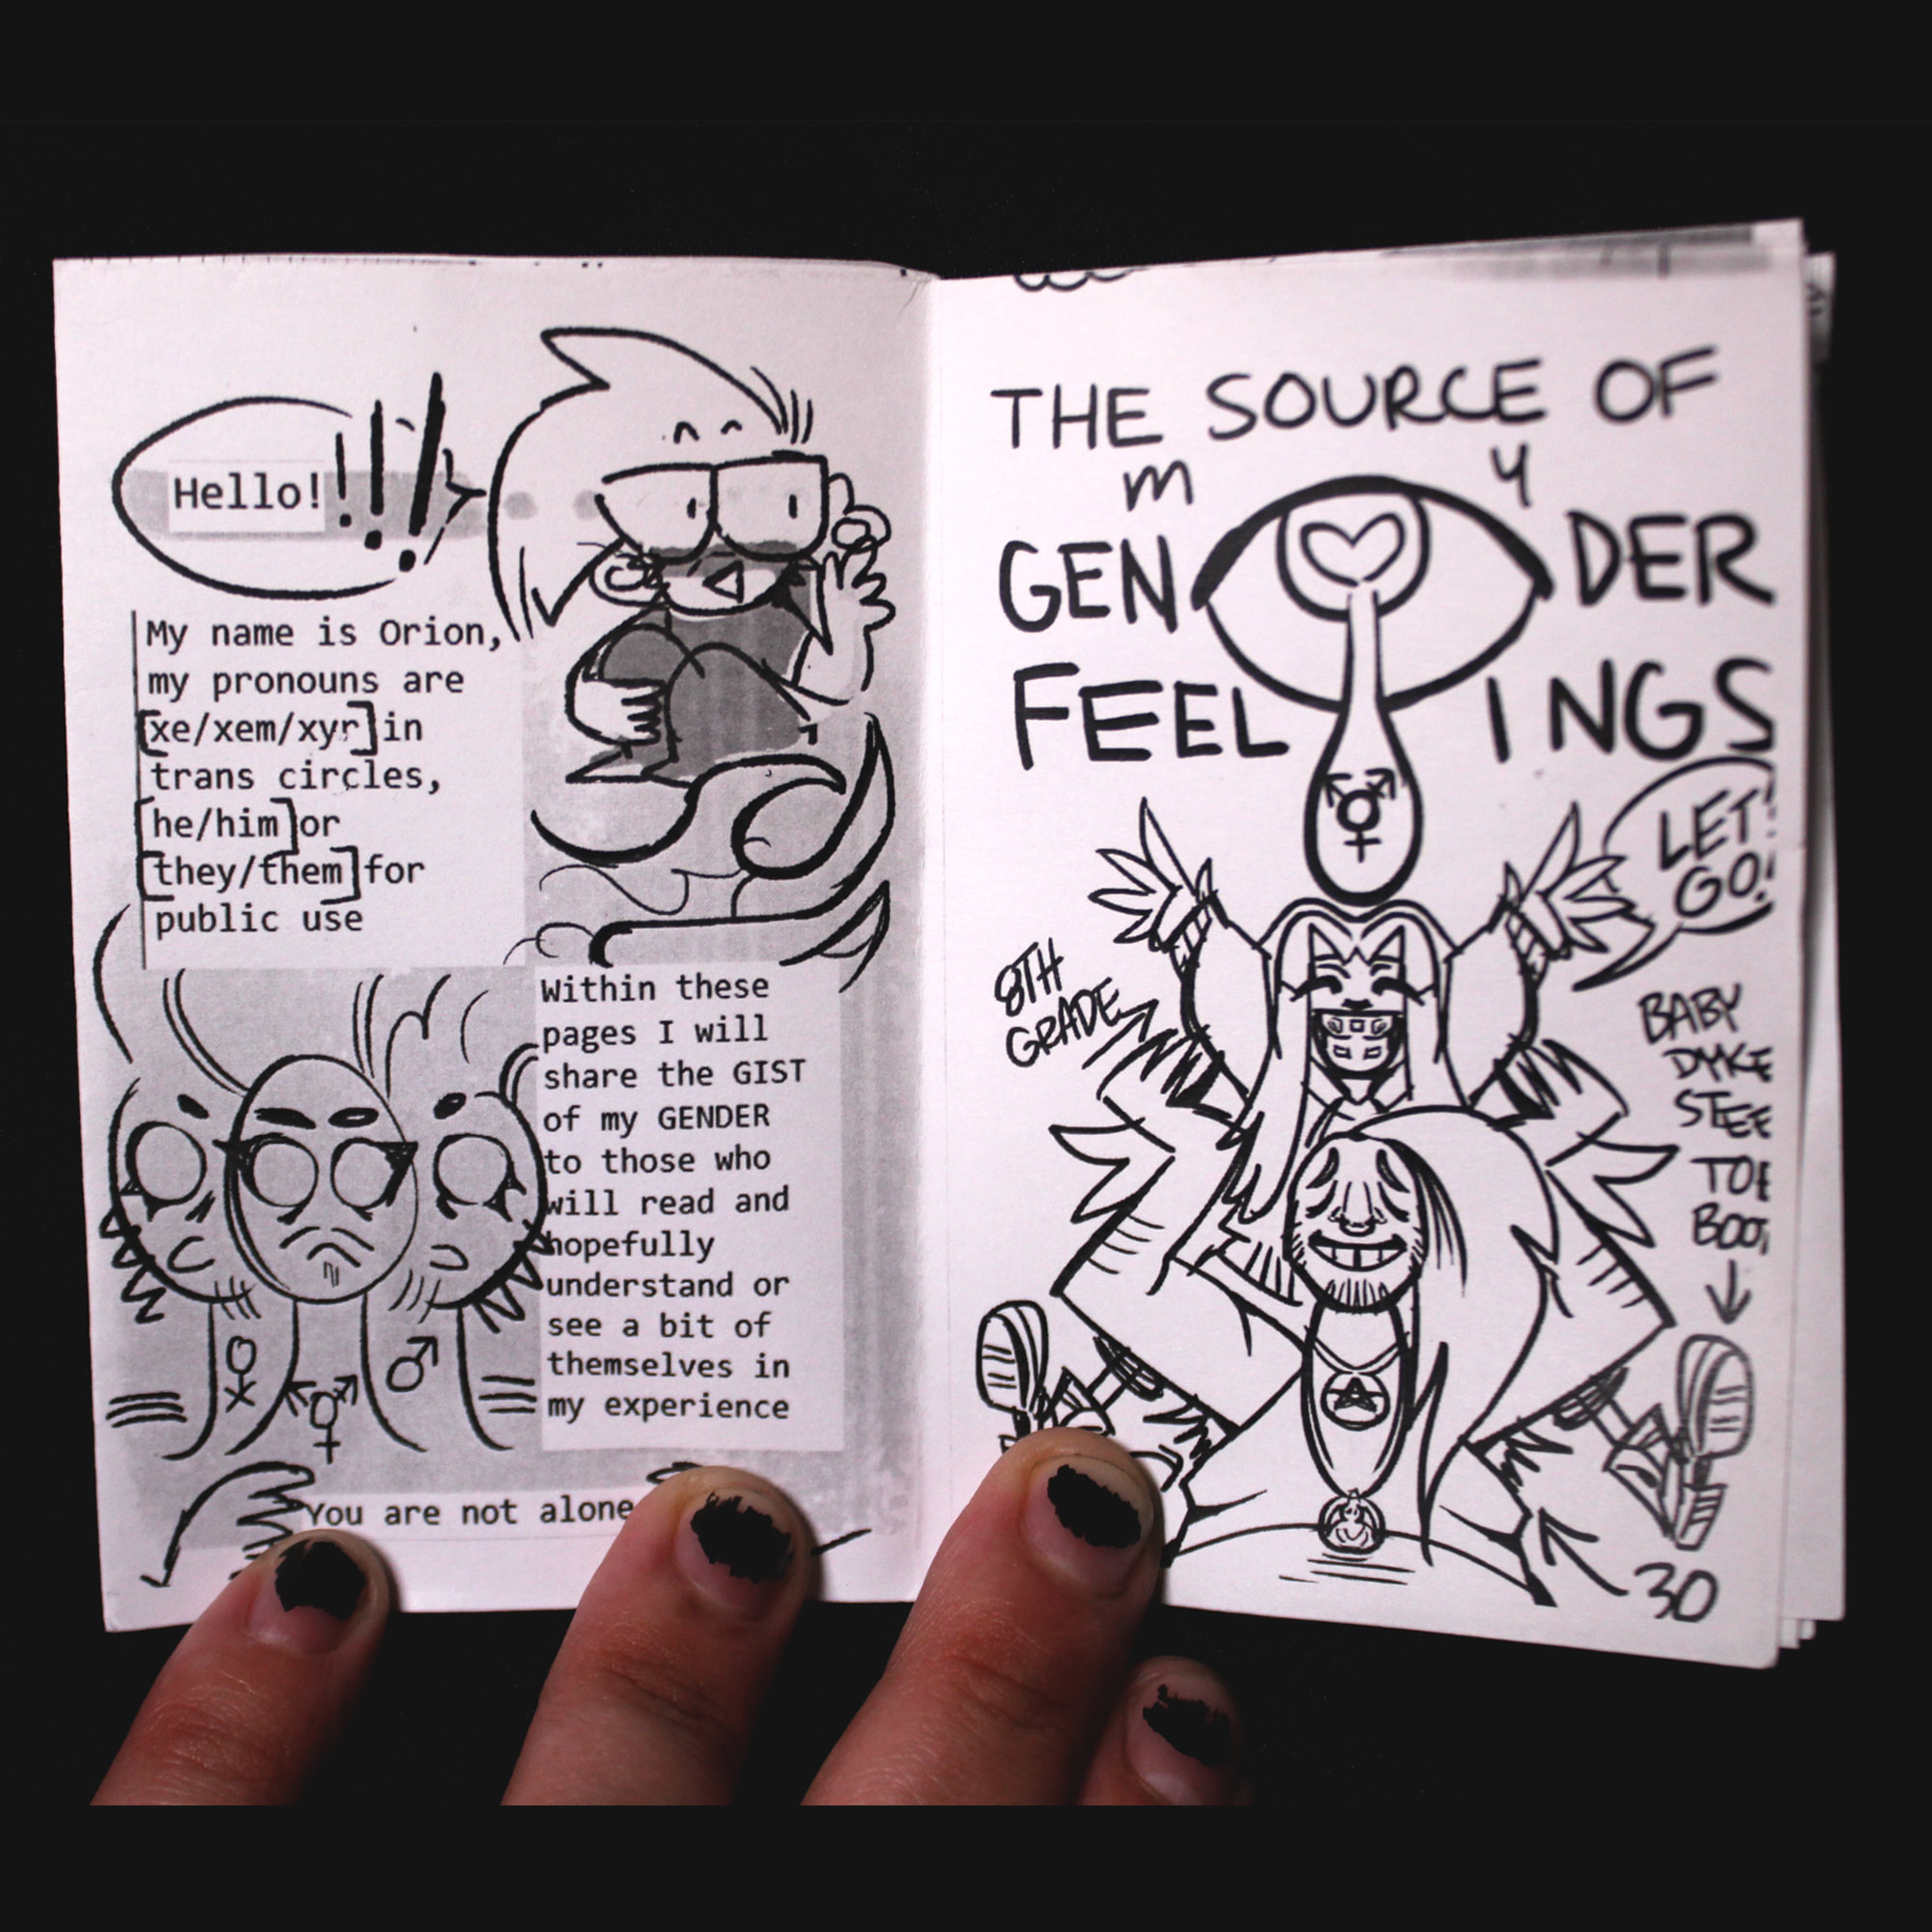 Hello!!!!
My name is Orion,
my pronouns are
[xe/xem/xyr]in
trans circles,
[he/him]or
[they/them]for
public use
Within these
pages I will
share the GIST
of my GENDER
to those who
will read and
hopefully
understand or
see a bit of
themselves in
my experience
You are not alone
THE SOURCE OF
m y
GEN DER
FEEL INGS
LET!
GO!
8TH
GRADE
BABY
DYKE
STEE
TOE
BOO
30